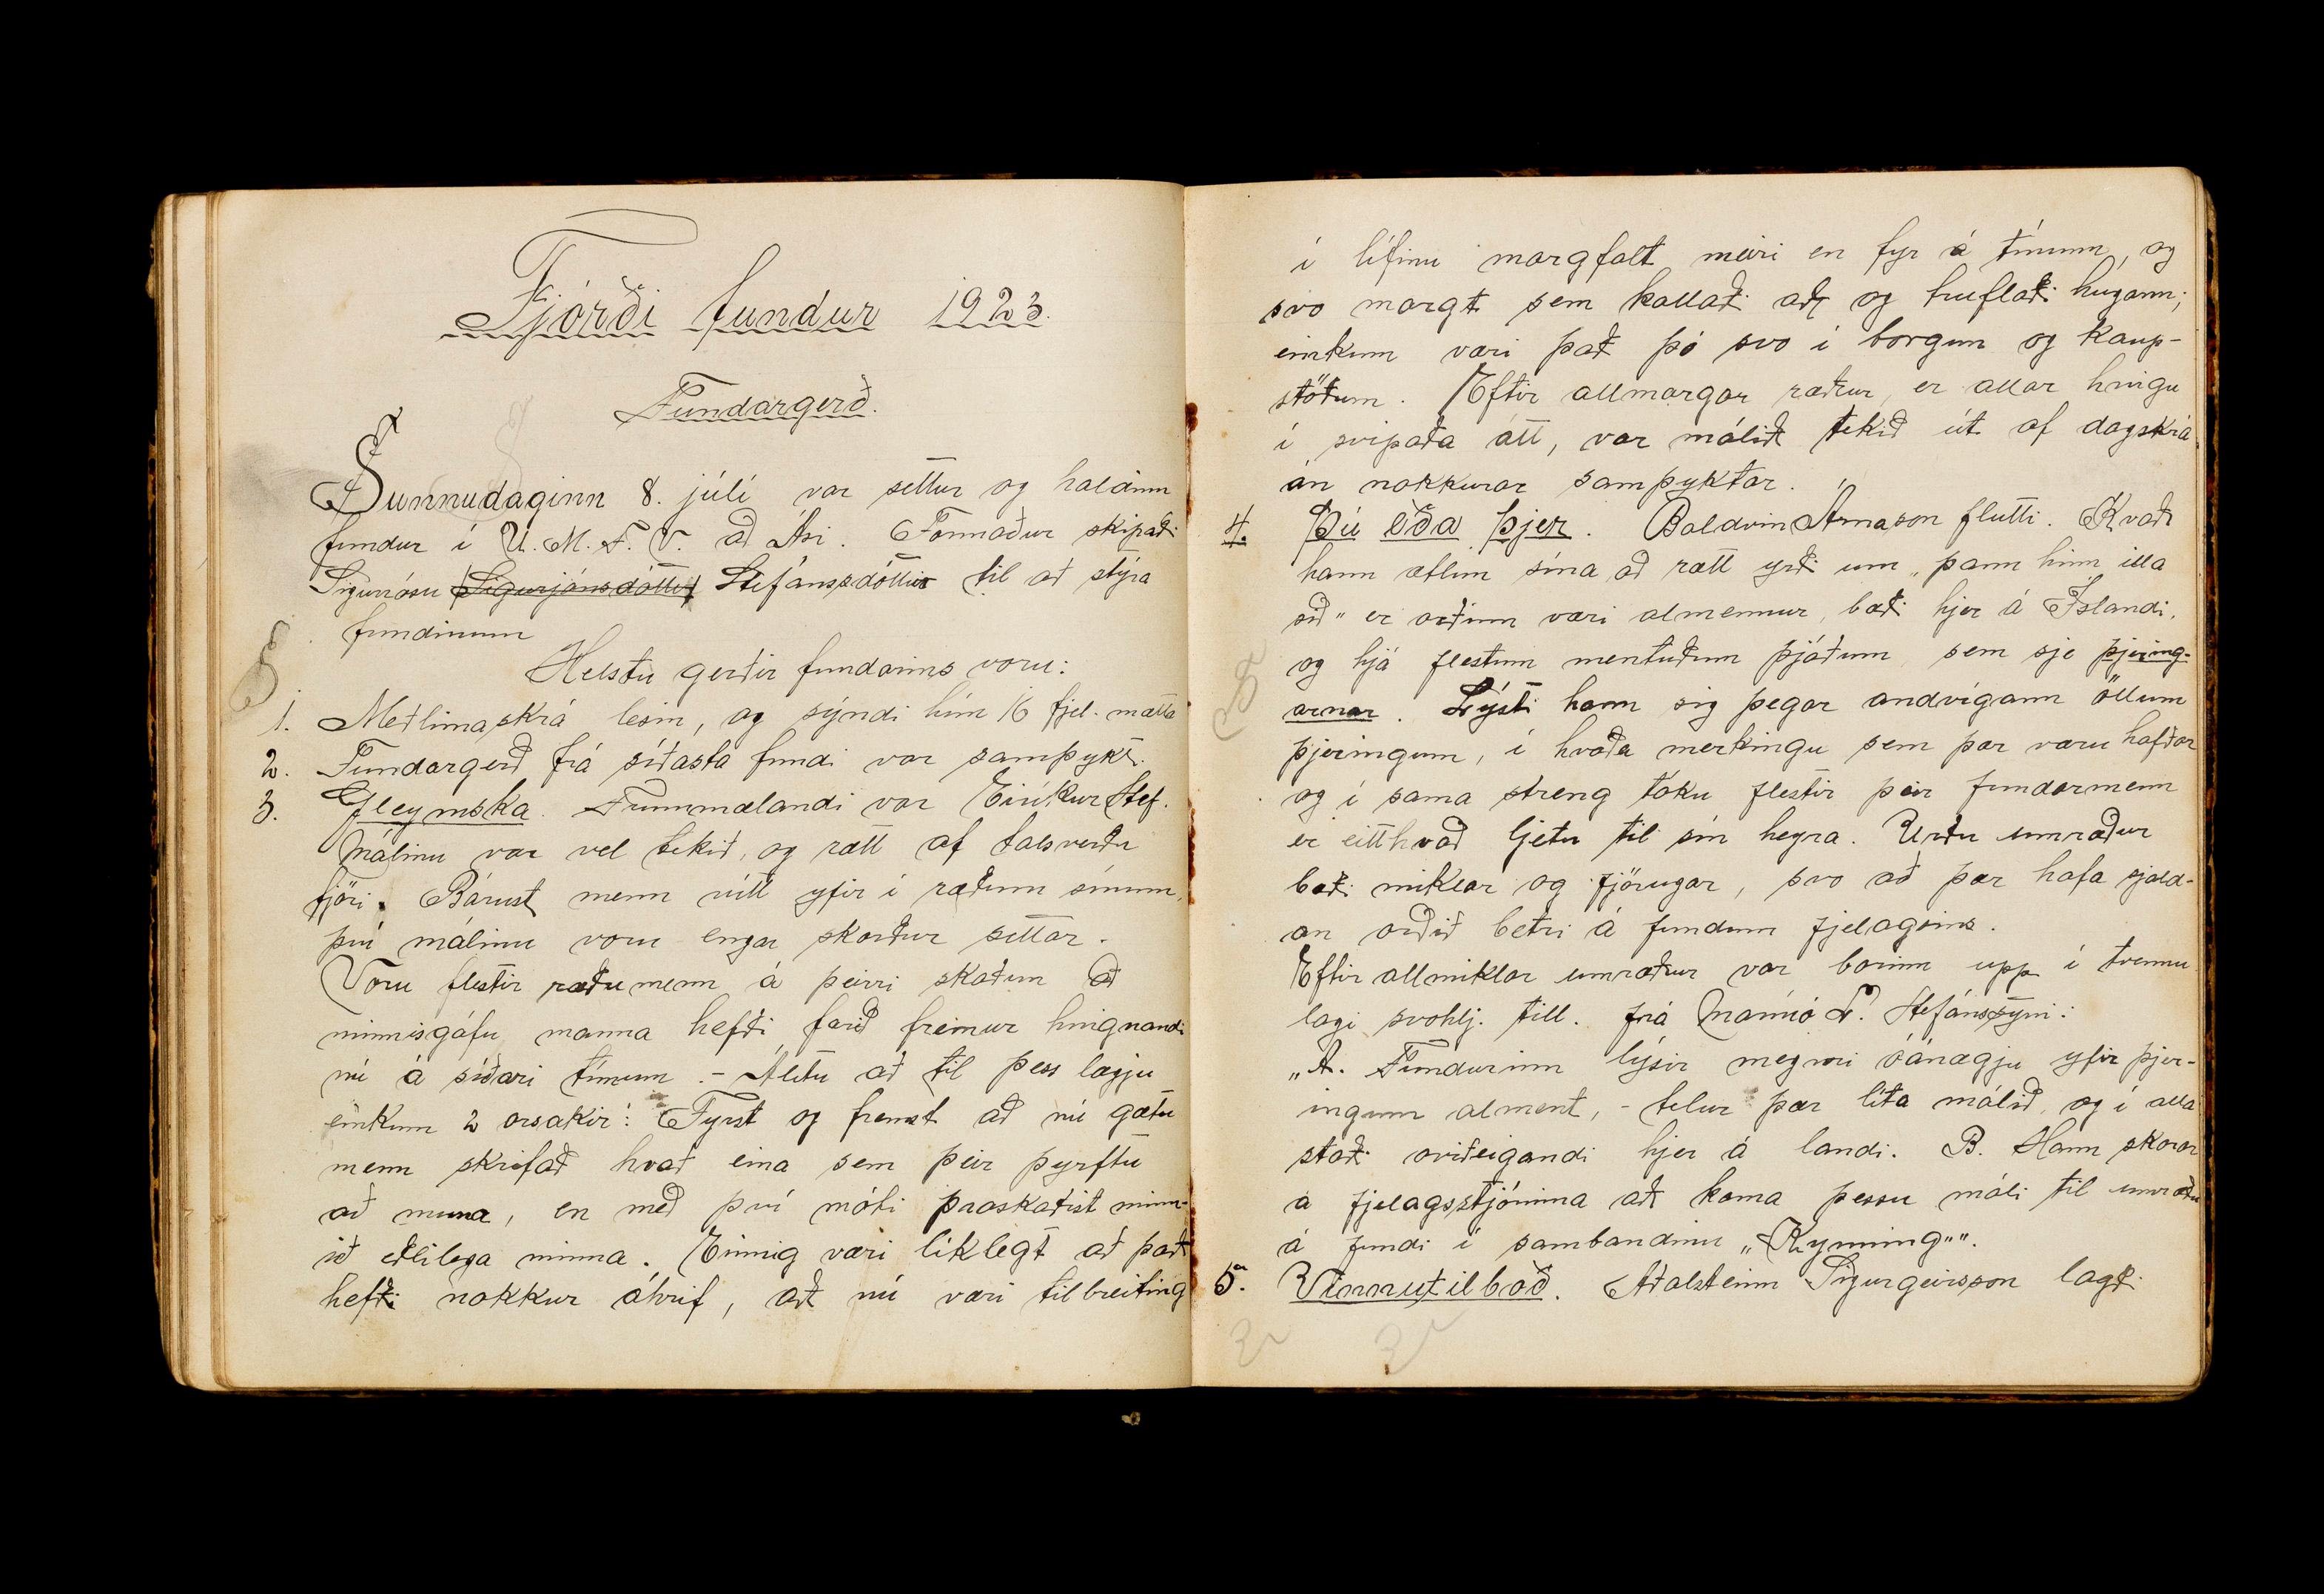 Fjórði fundur 1923.
Fundargerð.
Sunnudaginn 8. júlí var settur og haldinn
fundur í U. M. F. V. að Ási. Formaður skipaði
Sigurrósu Sigurjónsdóttur Stefánssdóttur til að stýra
fundinum
Helstu gerðir fundarins voru:
1. Meðlimaskrá lesin, og sýndi hún 16 fjel. mætta
2. Fundargerð frá síðasta fundi var samþykt.
3. Gleymska. Frummælandi var Eiríkur Stef.
Málinu var vel tekið, og rætt af talsverðu
fjöri. Bárust menn vítt yfir í ræðum sínum,
því málinu voru engar skorður settar.
Voru flestir ræðumenn á þeirri skoðun að
minnisgáfu manna hefði farið fremur hnignandi
nú á síðari tímum. - Álitu að til þess lægju
einkum 2 orsakir: Fyrst og fremst að nú gætu
menn skrifað hvað eina sem þeir þyrftu
að muna, en með því móti þroskaðist minn-
ið eðlilega minna. Einnig væri líklegt að það
hefði nokkur áhrif, að nú væri tilbreiting
í lífinu margfalt meiri en fyr á tímum, og
svo margt sem kallaði að, og truflaði hugann;
einkum væri það þó svo í borgum og kaup-
stöðum. Eftir allmargar ræður, er allar hnigu
í svipaða átt, var málið tekið út af dagskrá
án nokkurar samþyktar.
4. Þú eða þjer. Baldvin Árnason flutti. Kvað
hann ætlun sína að rætt yrði um „þann hinn illa
sið" er orðinn væri almennur, bæði hjer á Íslandi,
og hjá flestum mentuðum þjóðum sem sje þjering-
arnar. Lýsti hann sig þegar andvígann öllum
þjeringum, í hvaða merkingu sem þær væru hafðar
og í sama streng tóku flestir þeir fundarmenn
er eitthvað ljetu til sín heyra. Urðu umræður
bæði miklar og fjörugar, svo að þær hafa sjald-
an orðið betri á fundum fjelagsins.
Eftir allmiklar umræður var borinn upp í tvennu
lagi svohlj. till. frá L. Stefánssyni:
„A. Fundurinn lýsir megnri óánægju yfir þjer-
ingum alment, - telur þær lýta málið, og í alla
staði oviðeigandi hjer á landi. B. Hann skorar
á fjelagsstjórnina að koma þessu máli til umræðu
á fundi í sambandinu „Kynning"".
5. Vinnutilboð. Aðalsteinn Sigurgeirsson lagði